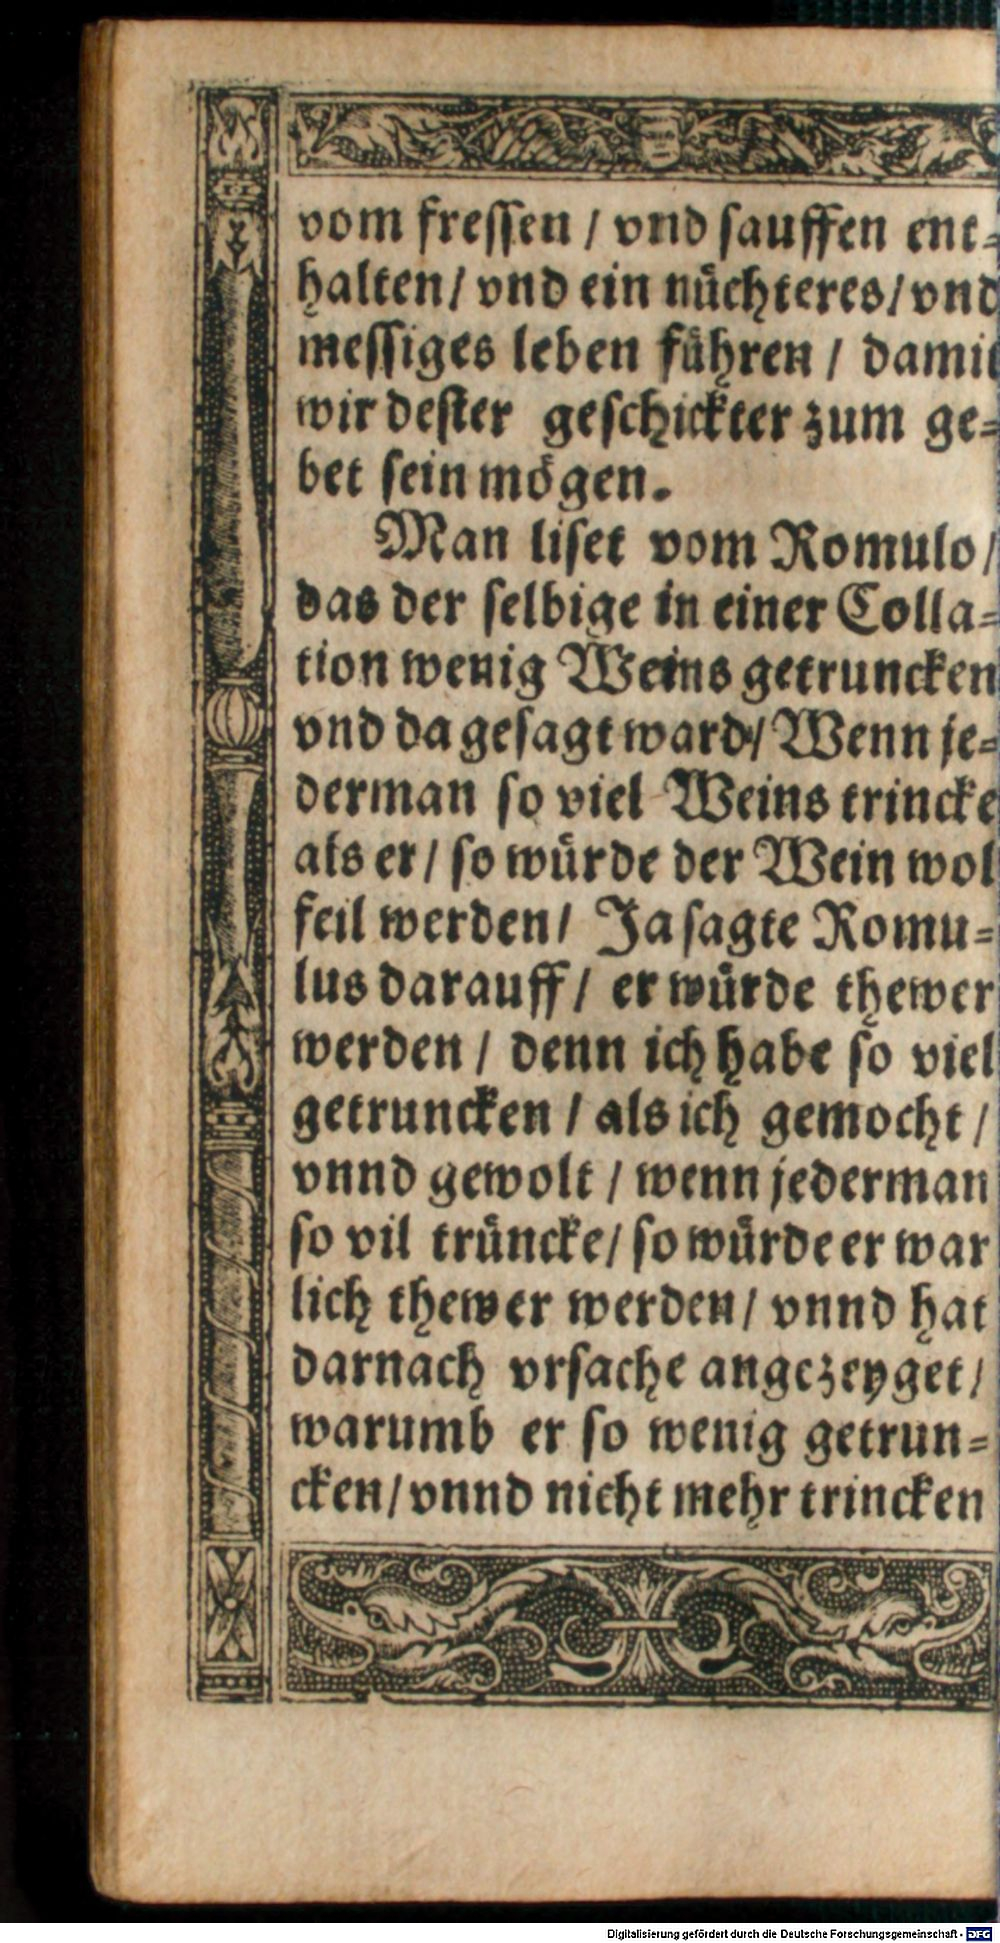 vom fressen / vnd sauffen ent⸗
halten / vnd ein nüchteres / vnd
messiges leben führen / damit
wir dester geschickter zum ge⸗
bet sein mögen.
Man liset vom Romulo /
das der selbige in einer Colla⸗
tion wenig Weins getruncken
vnd da gesagt ward / Wenn je⸗
derman so viel Weins trincke
als er / so würde der Wein wol
feil werden / Ja sagte Romu⸗
lus darauff / er würde thewer
werden / denn ich habe so viel
getruncken / als ich gemocht /
vnnd gewolt / wenn jederman
so vil trüncke / so würde er war
lich thewer werden / vnnd hat
darnach vrsache angezeyget /
warumb er so wenig getrun⸗
cken / vnnd nicht mehr trincken
Digitalisierung gefördert durch die Deutsche Forschungsgemeinschaft - DFG